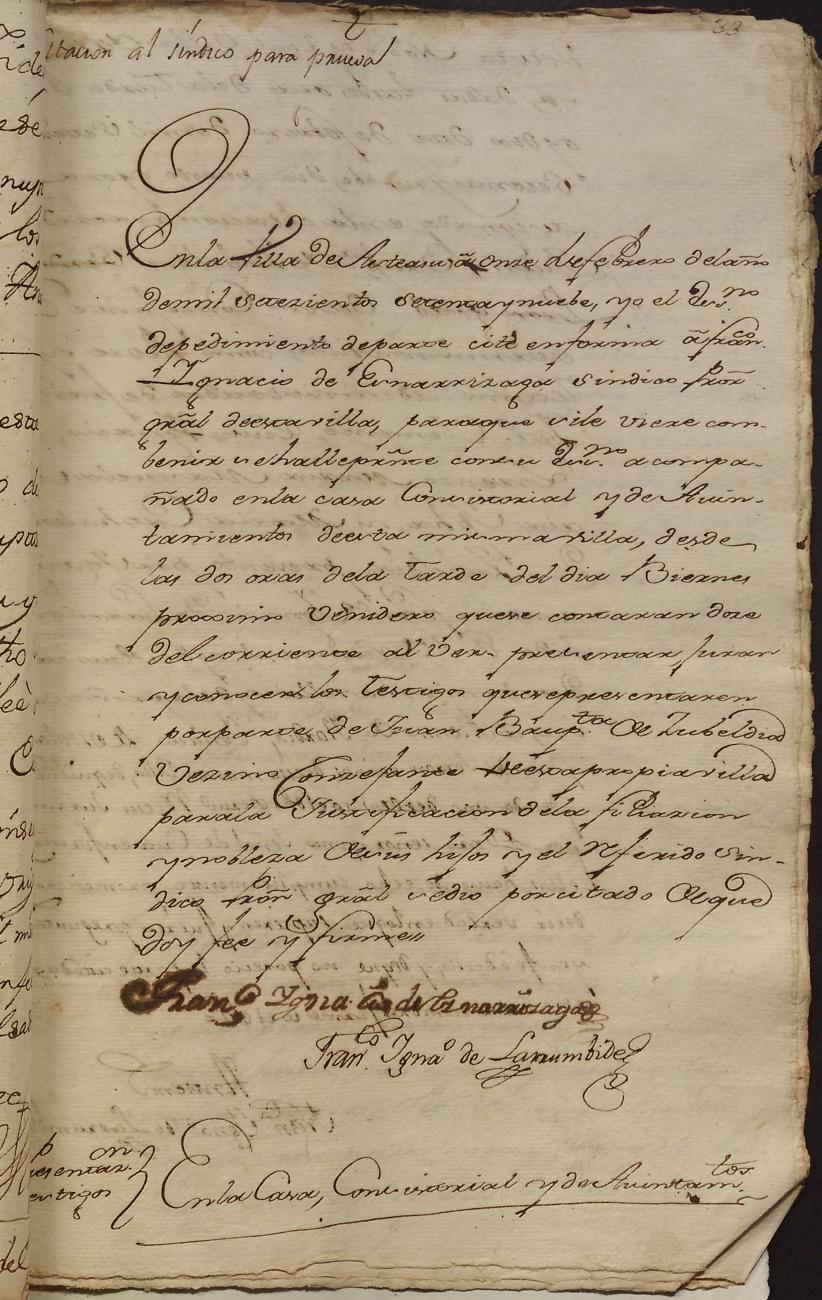 33
Citacion al síndico para prueva
En la Villa de Azteasu â onze de febrero del año
de mil setezientos setenta y nuebe, yo el Es.no
de pedimiento de parte cité en forma â Fran.co
Ygnacio de Eznarrizaga sindico Pror
gràl de esta villa, para que si le viere com-
benir se halle presñte con su Es.no acompa-
ñado en la casa Concistorial y de Aiun-
tamientos de esta misma villa, desde
las dos oras de la tarde del dia Biernes
proximo venidero que se contaran doze
del corriente al ver presentar, Juran
y conocer los testigos que se presentaren
por parte de Juan Baup.ta de Zubeldia
Vezino Concejante de esta propia villa
para la Justificacion de la filiazion
y nobleza de sus hijos y el Referido Sin-
dico Prôn gràl se dio por citado de que
doy fee y firme
Fran.co Ygnacio de Eznarrizaga
Fran.co Ygna.o de Larrumbide
Presentaz.on
testigos
En la Casa, Concistorial y de Aiuntam.tos